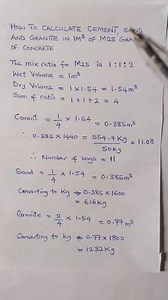 HOW TO CALCULATE CEMENT, SAND
AND GRANITE IN 1M³ OF M25 GRADE
OF CONCRETE
The mix ratio for M25 is 1:1:2
Wet Volume = 1m³
Dry Volume = 1 × 1.54 = 1.54m³
Sum of ratio = 1+1+2 = 4
Cement = 1/4 × 1.54 = 0.385m³
∴ 0.385 × 1440 = 554.4Kg / 50Kg = 11.08
∴ Number of bags = 11
Sand = 1/4 × 1.54 = 0.385m³
Converting to Kg → 0.385 × 1600
= 616Kg
Granite = 2/4 × 1.54 = 0.77m³
Converting to Kg → 0.77 × 1600
= 1232Kg